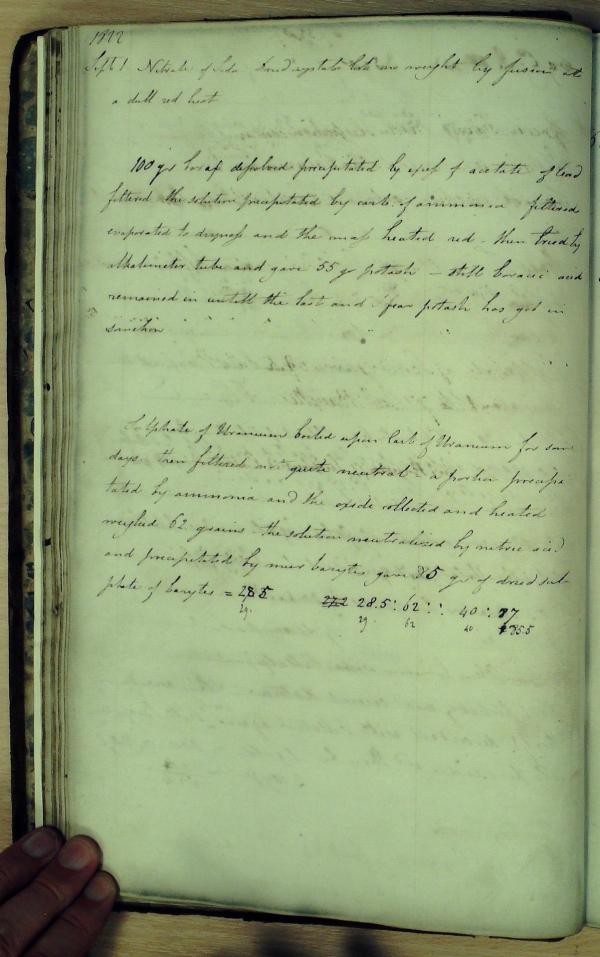 1822
Sept 1 Nitrate of Soda Dried crystals lost no weight by fusion at
a dull red heat
100 gr borax dissolved precipitated by exces of acetate of lead
filtered the solution precipitated by carb. of ammonia filtered
evaporated to dryness and the mass heated red. then tried by
alkalimeter tube and gave 55 gr potash – still boracic acid
remained in untill the last and I fear potash has got in
somehow
Sulphate of Uranium boiled upon Carb of Uranium for some
days. then filtered not quite neutral a portion precipi
tated by ammonia and the oxide collected and heated
weighed 62 grains. the solution neutralized by nitric acid
and precipitated by mur barytes gave 85 gr of dried sul-
phate of barytes = 28.5 272 28.5 : 62 :: 40 : 87
29. 29 62 40 85.5